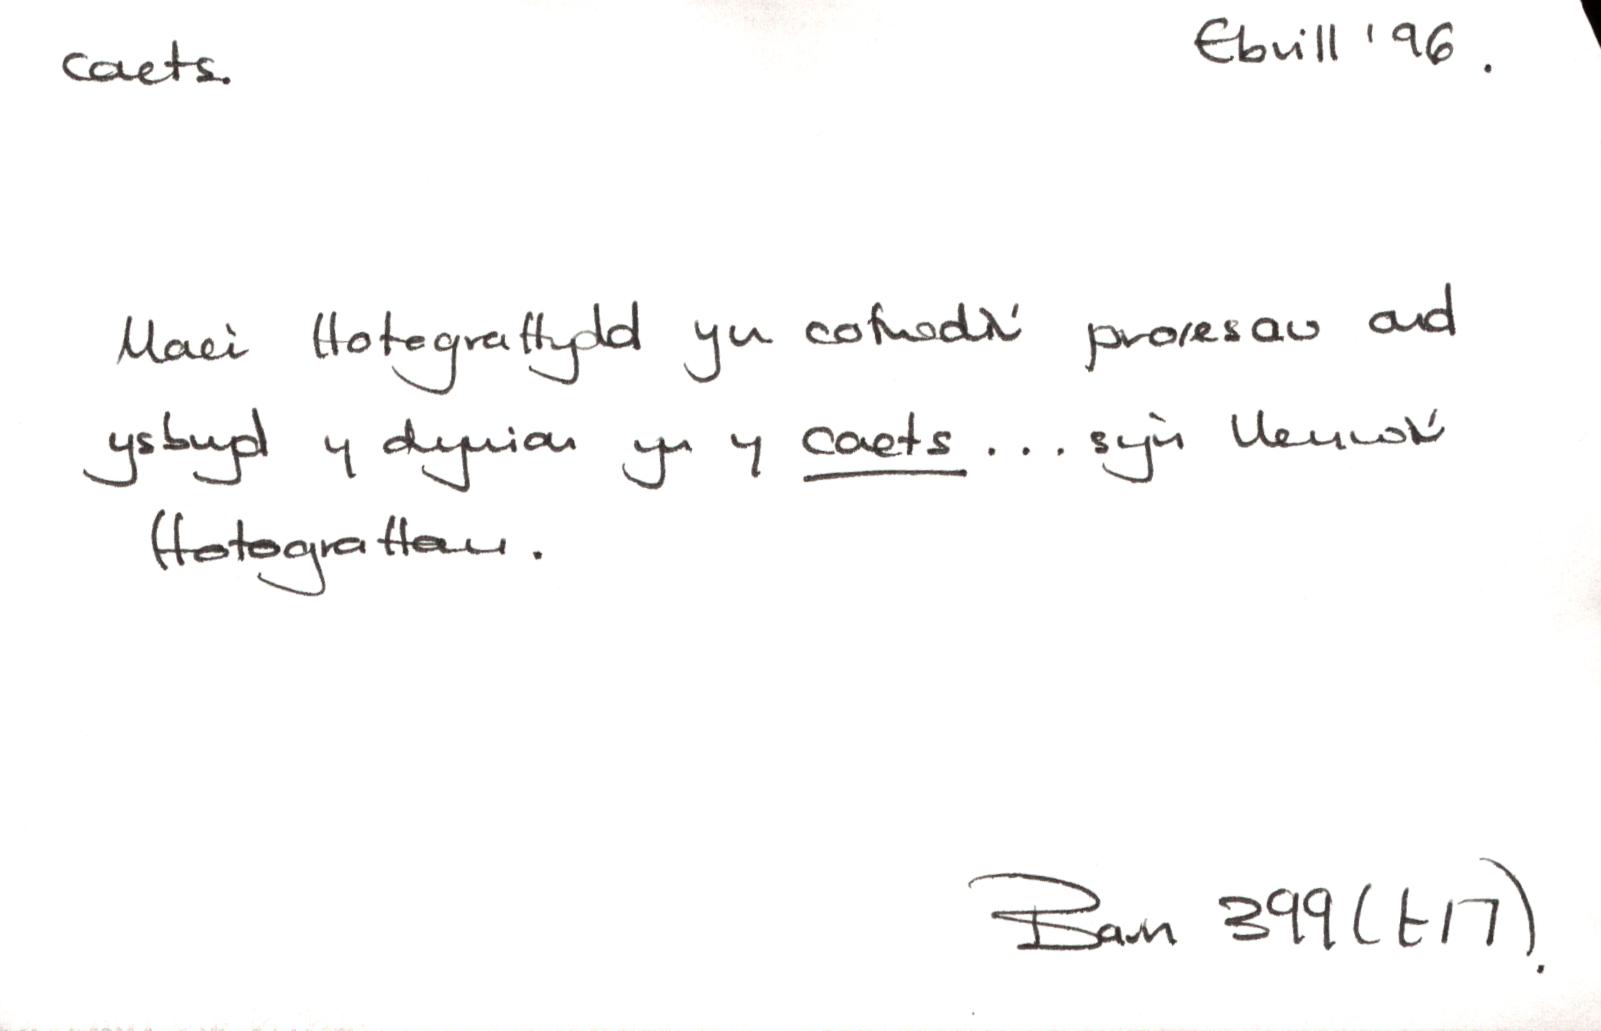 caets. Ebrill '96.
Mae'r ffotograffydd yn cofnodi'r prosesau ard
ysbryd y dynion yn y caets ... sy'n llenwi'r
ffotograffau.
Barn 399 (t17).